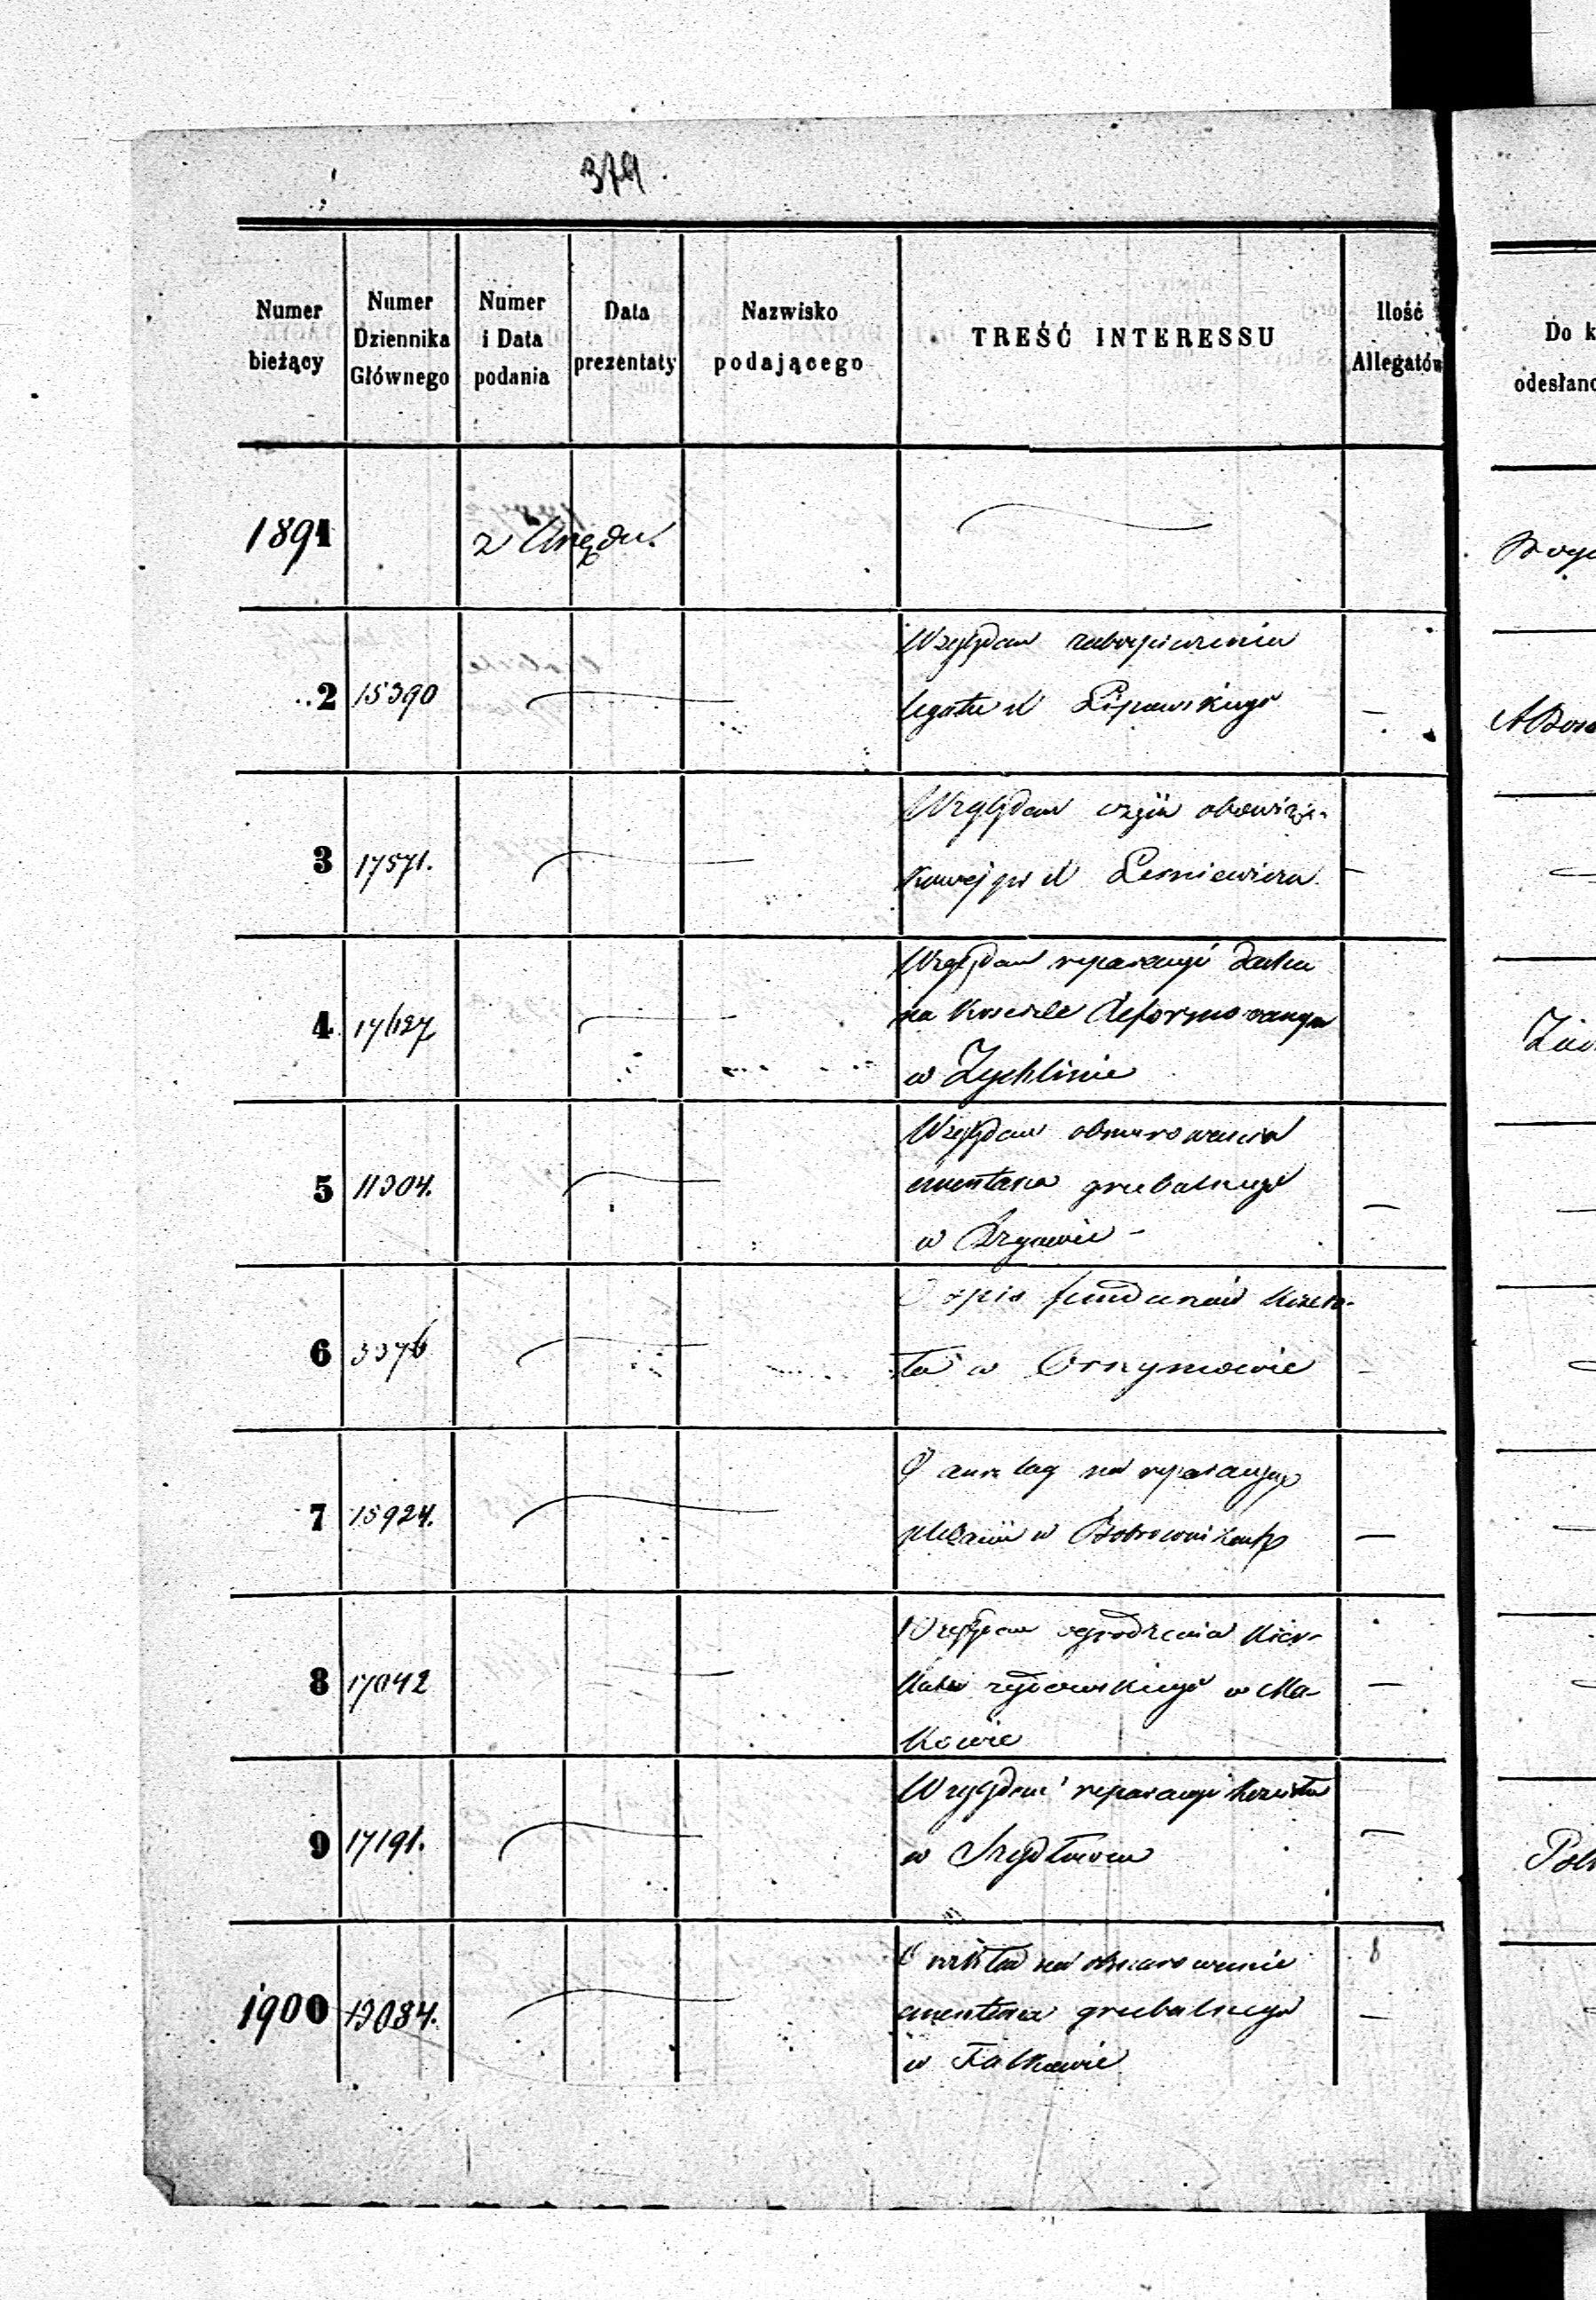 379.
Numer bieżący
Numer Dziennika Głównego
Numer i Data podania
Data prezentaty
Nazwisko podającego
TREŚĆ INTERESSU
Ilość Allegatów
Do k
odesłano
1891
z Urzędu.
2
15390
Względem zabezpieczenia
legatu
Lipowskiego
3
17571.
Względem
obowiąz-
kowej
4
17127
Względem reparacyi dachu
na kosciele Reformowanym
w Zychlinie
5
11304.
Względem obmurowania
cmentarza grzebalnego
w
6
3376
Opis funduszów koscio-
ła w
7
15924.
O anszlag na reparacyą
plebanii w Bobrownikach
8
17042
Względem ogrodzenia kier-
kutu żydowskiego w Ma-
kowie
9
17191.
Względem reparacyi kościoła
w Szydłowcu
1900
13084.
na obmurowanie
cmentarza grzebalnego
w Falkowie
8